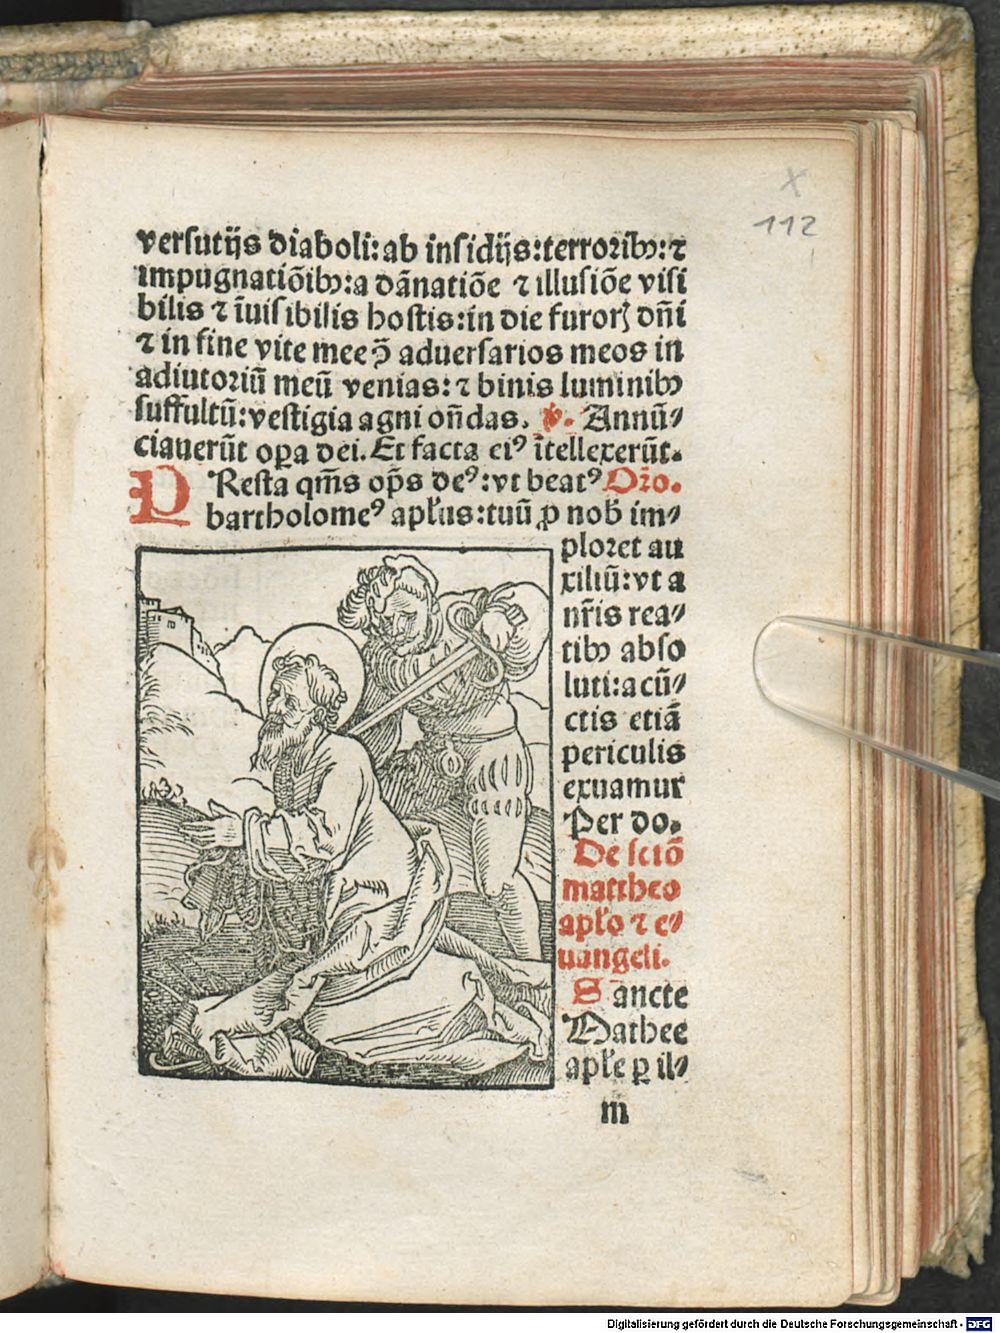 X
112
versutijs diaboli: ab insidijs: terroribꝫ: ⁊
impugnatiõibꝫ: a dãnatiõe ⁊ illusiõe visi
bilis ⁊ ĩuisibilis hostis: in die furorꝭ dñi
⁊ in fine vite mee ꝯ̃ aduersarios meos in
adiutoriũ meũ venias: ⁊ binis luminibꝫ
suffultũ: vestigia agni oñdas. ℣. Annũ⸗
ciauerũt oꝑa dei. Et facta eiꝰ ĩtellexerũt.
PResta qm̃s op̃s deꝰ: vt beatꝰ Orõ.
bartholomeꝰ apl̃us: tuũ ꝓ nob̃ im⸗
ploret au
xiliũ: vt a
nr̃is rea⸗
tibꝫ abso
luti: a cũ⸗
ctis etiã
periculis
exuamur
Per do.
De sctõ
mattheo
apl̃o ⁊ e⸗
uangeli.
Sancte
Mathee
apl̃e ꝑ il⸗
m
Digitalisierung gefördert durch die Deutsche Forschungsgemeinschaft - DFG